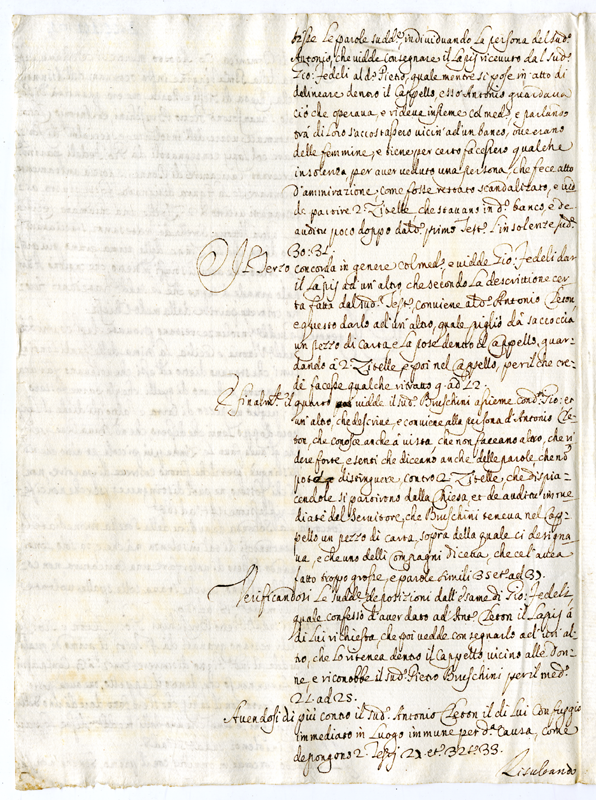 triste le parole sudd.e, individuando la persona del sud.o
Antonio, che vidde consegnare il Lapis ricevuto dal sud.o
Gio: Fedeli al d.o Pietro, quale mentre si pose in atto di
delineare dentro il Cappello, esso Antonio guardava
ciò che operava, e rideve insieme col med.o, e parlando
trà di loro s'accostassero vicin' ad un banco, ove erano
delle femmine, e tiene per certo facessero qualche
insolenza, per aver veduto una persona, che fece atto
d'ammirazione, come fosse restato scandalizato, e vid
de partire 2. Zitelle, che stavano in d.o banco, e de
auditu poco doppo dal d.o primo Test.e l'insolenze sud.e
30: 31.
Il Terzo concorda in genere col med.o, e vidde Gio: Fedeli dar
il Lapis ad un'altro, che secondo la descrittione cer
ta fatta dal sud.o Test.e, conviene al d.o Antonio
e questo darlo ad un'altro, quale pigliò da saccoccia
un pezzo di carta e la pose dentro il Cappello, guar-
dando à 2. Zitelle, e poi nel Cappello, per il che cre-
dè facesse qualche ritratto q. ad 42.
E finalm.te il quarto vidde il sud.o Bruschini assieme con d.o Gio: et
un'altro, che descrive, e conviene alla persona d'Antonio
che conosce anche à vista che non faceano altro, che ri
dere forte, e sentì che diceano anche delle parole, che nò
potè distinguere, contro 2. Zitelle, che dispia-
cendole si partirono dalla Chiesa et de auditu imme
diate dal Servitore, che Bruschini teneva nel Cap-
pello un pezzo di carta, sopra della quale ci designa
va, e che uno delli Compagni diceva, che ce l'avea
fatto troppo grosse, e parole simili 35 et ad 37.
Verificandosi le sudd.e depositioni dall'Esame di Gio: Fedeli,
quale confessò d'aver dato ad Ant.o il Lapis à
di lui richiesta, che poi vedde consegnarlo ad un'al-
tro, che lo riteneva dentro il Cappello vicino alle don-
ne, e riconobbe il sud.o Pietro Bruschini per il med.o
24. ad 25.
Avendosi di più contro il sud.o Antonio il di lui Confuggio
immediato in Luogo immune per d.a Causa, come
depongono 2. Testij 29 et 32 et 33.
Resultando